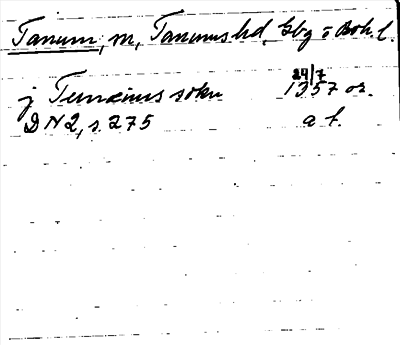 Tanum, sn, Tanums hd, Gbg o Boh. l.
24/7
j Tunæims sokn 1357 or.
DN 2, s. 275 a f.